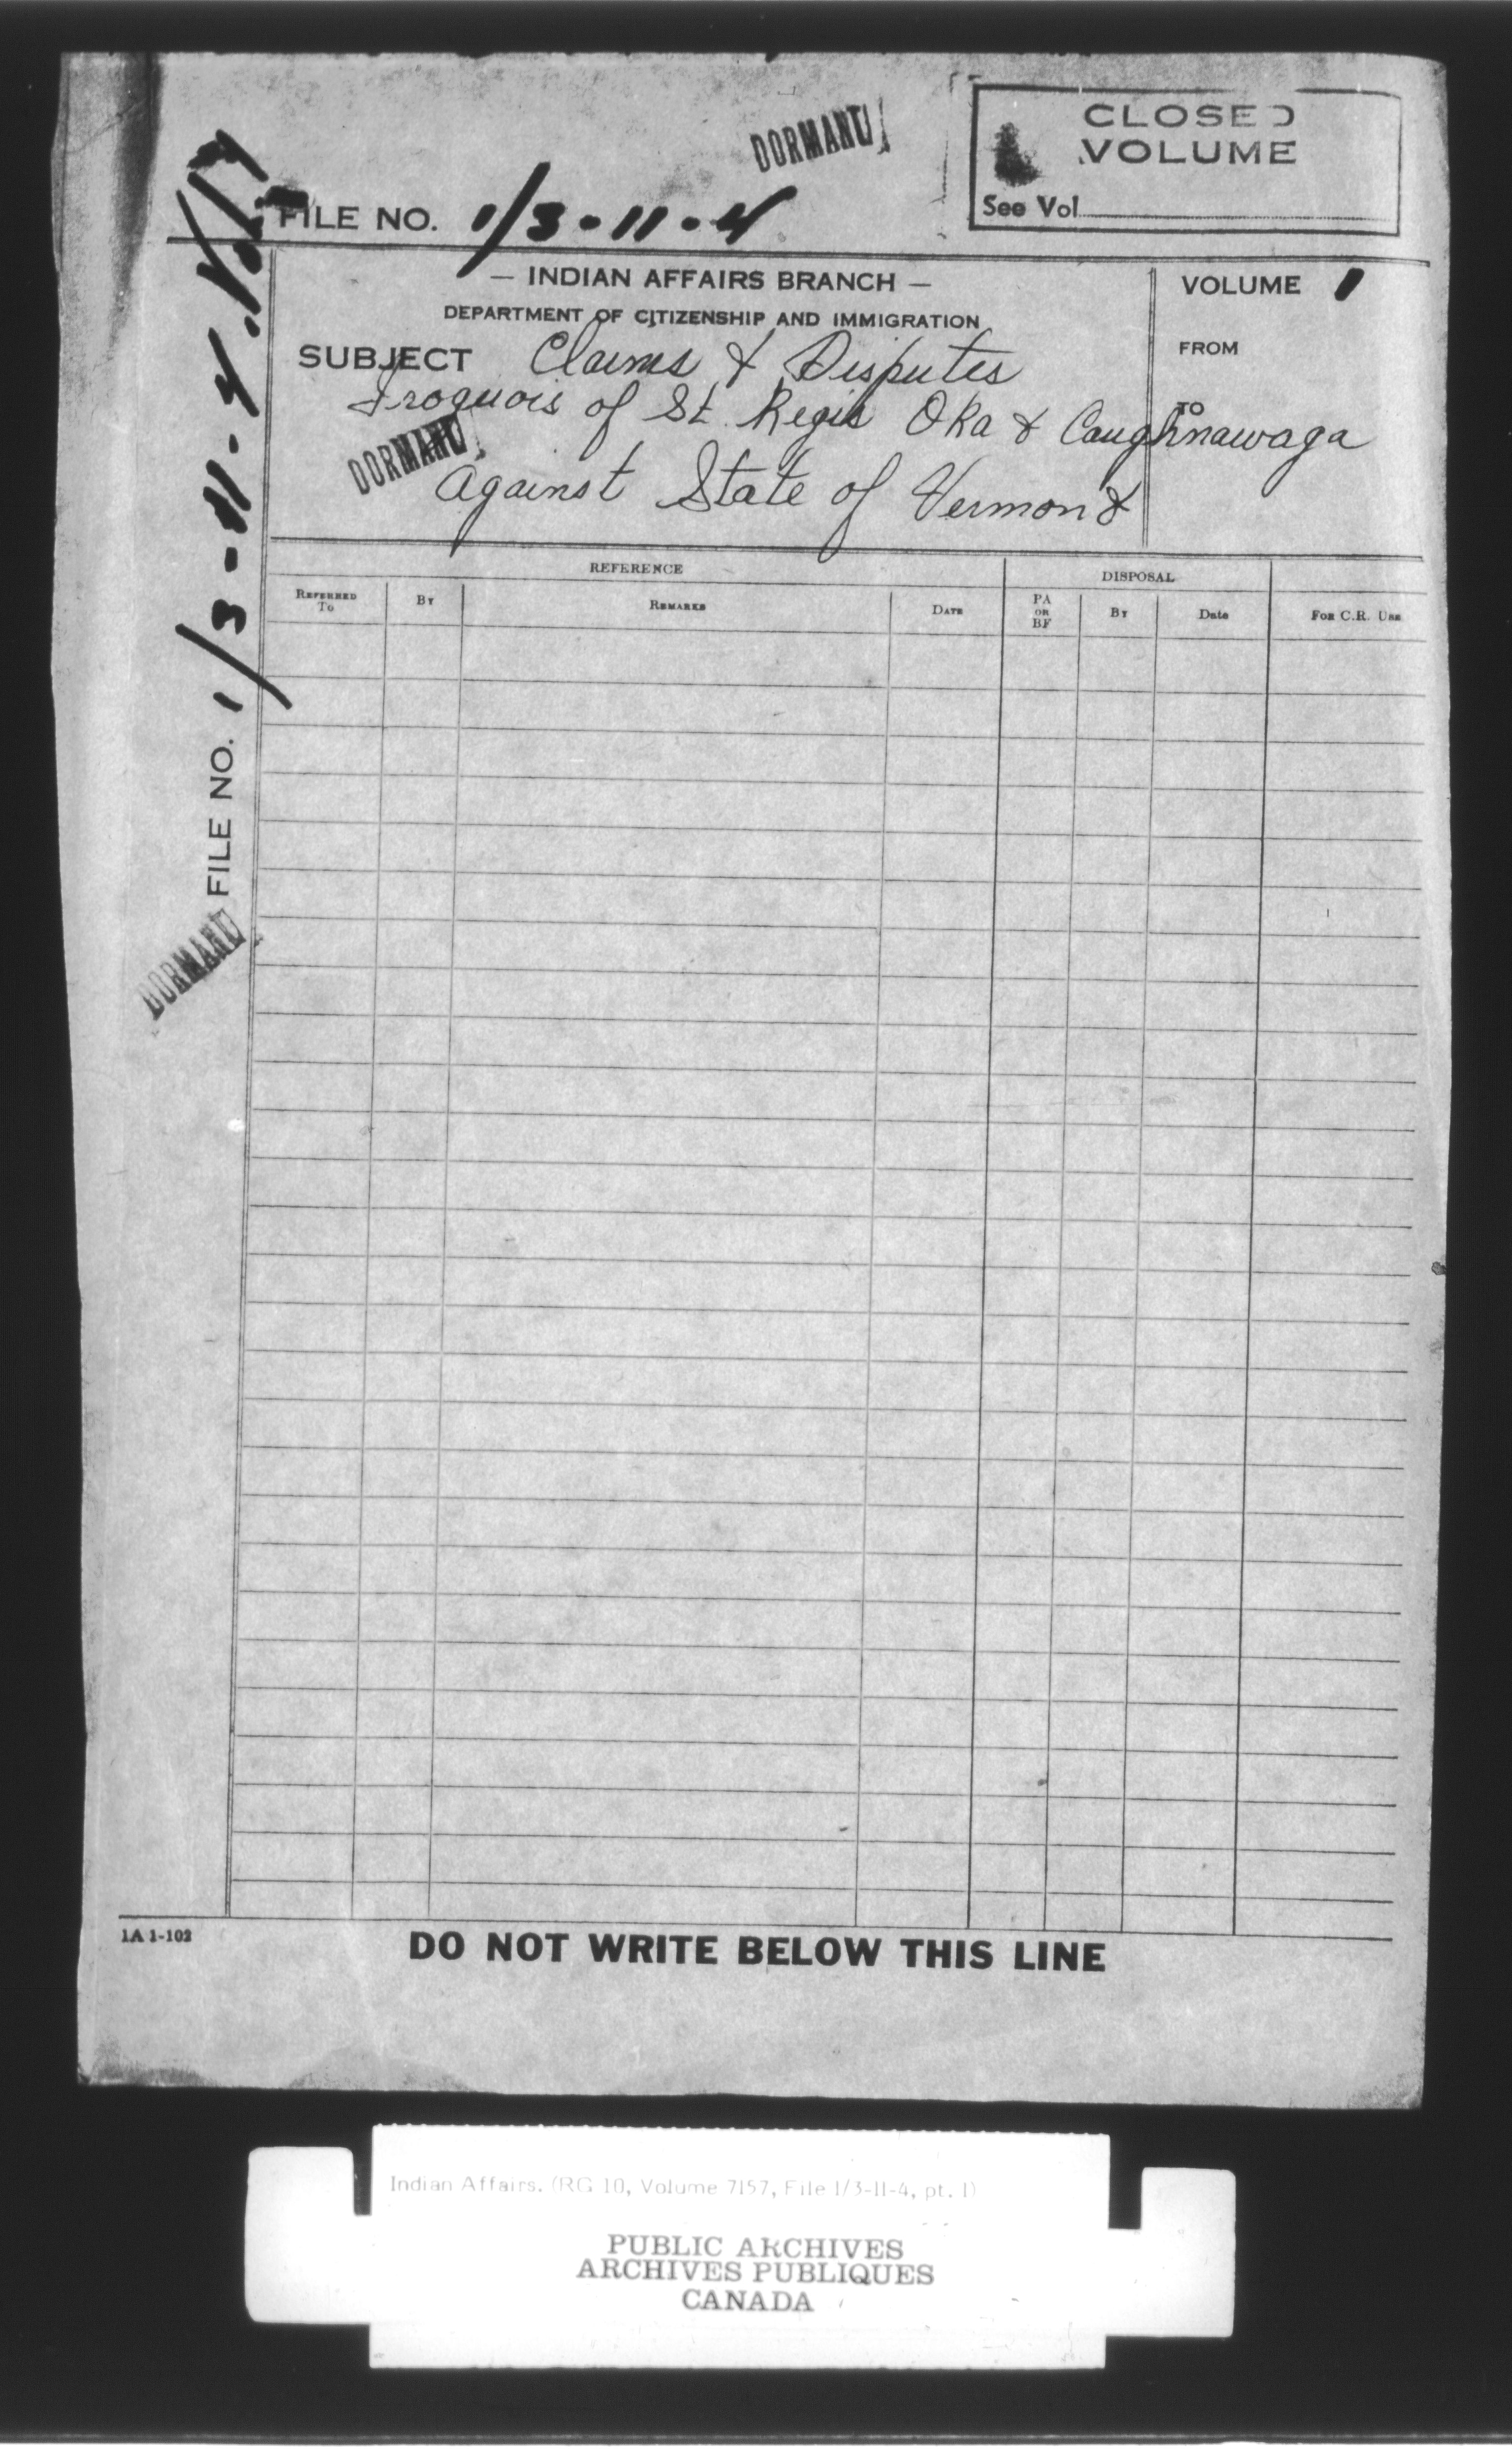 DORMANT
CLOSED
VOLUME
See Vol
FILE NO. 1/3-11-4
— INDIAN AFFAIRS BRANCH —
DEPARTMENT OF CITIZENSHIP AND IMMIGRATION
SUBJECT Claims & Disputes
Iroquois of St. Regis Oka & Caughnawaga
DORMANT
Against State of Vermont
VOLUME 1
FROM
TO
REFERENCE
DISPOSAL
REFERRED TO
BY
REMARKS
DATE
PA OR BF
BY
Date
FOR C.R. USE
FILE NO. 1/3-11-4. Vol 1
DORMANT
1A 1-102
DO NOT WRITE BELOW THIS LINE
Indian Affairs. (RG 10, Volume 7157, File 1/3-11-4, pt. 1)
PUBLIC ARCHIVES
ARCHIVES PUBLIQUES
CANADA